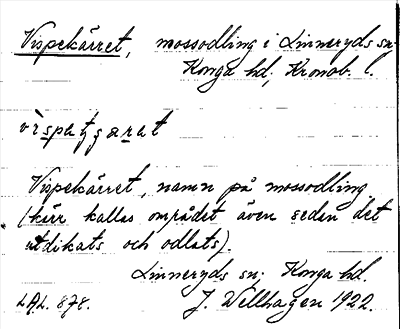 Vispekärret, mossodling i Linneryds sn;
Konga hd; Kronob. l.
Vispekärret, namn på mossodling
(kärr kallas området även sedan det
utdikats och odlats).
Linneryds sn; Konga hd.
L.A.L. 878. J. Wellhagen 1922.